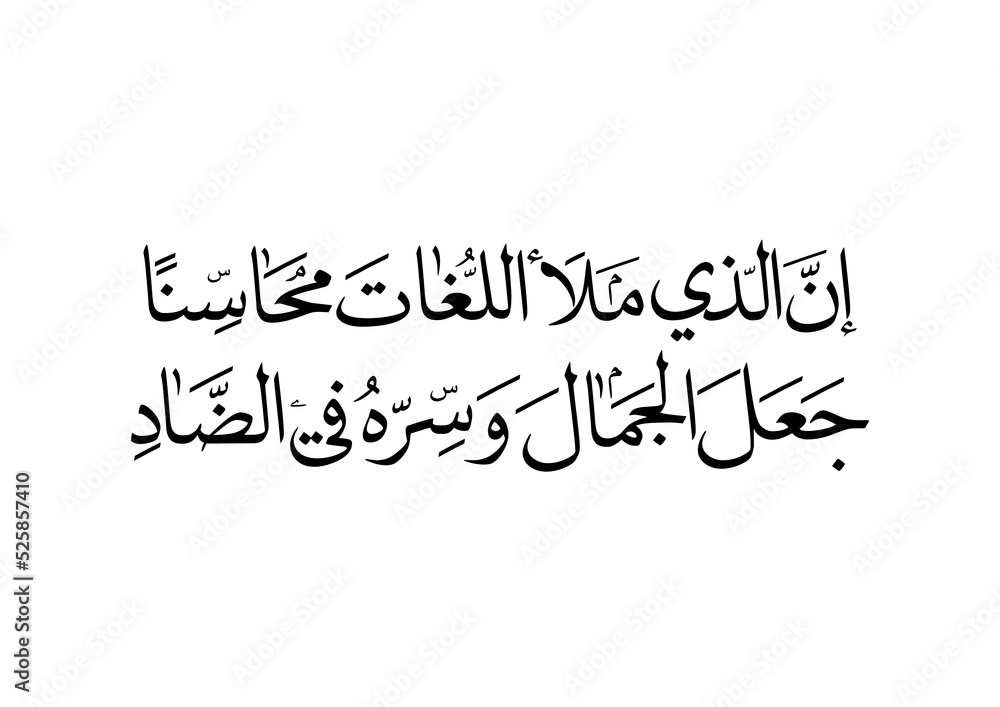 إِنَّ الّذي مَلَأَ اللُّغاتَ مَحَاسِنًا
جَعَلَ الجَمَالَ وَسِرّهُ في الضَّادِ
Adobe Stock | #525857410
Adobe Stock